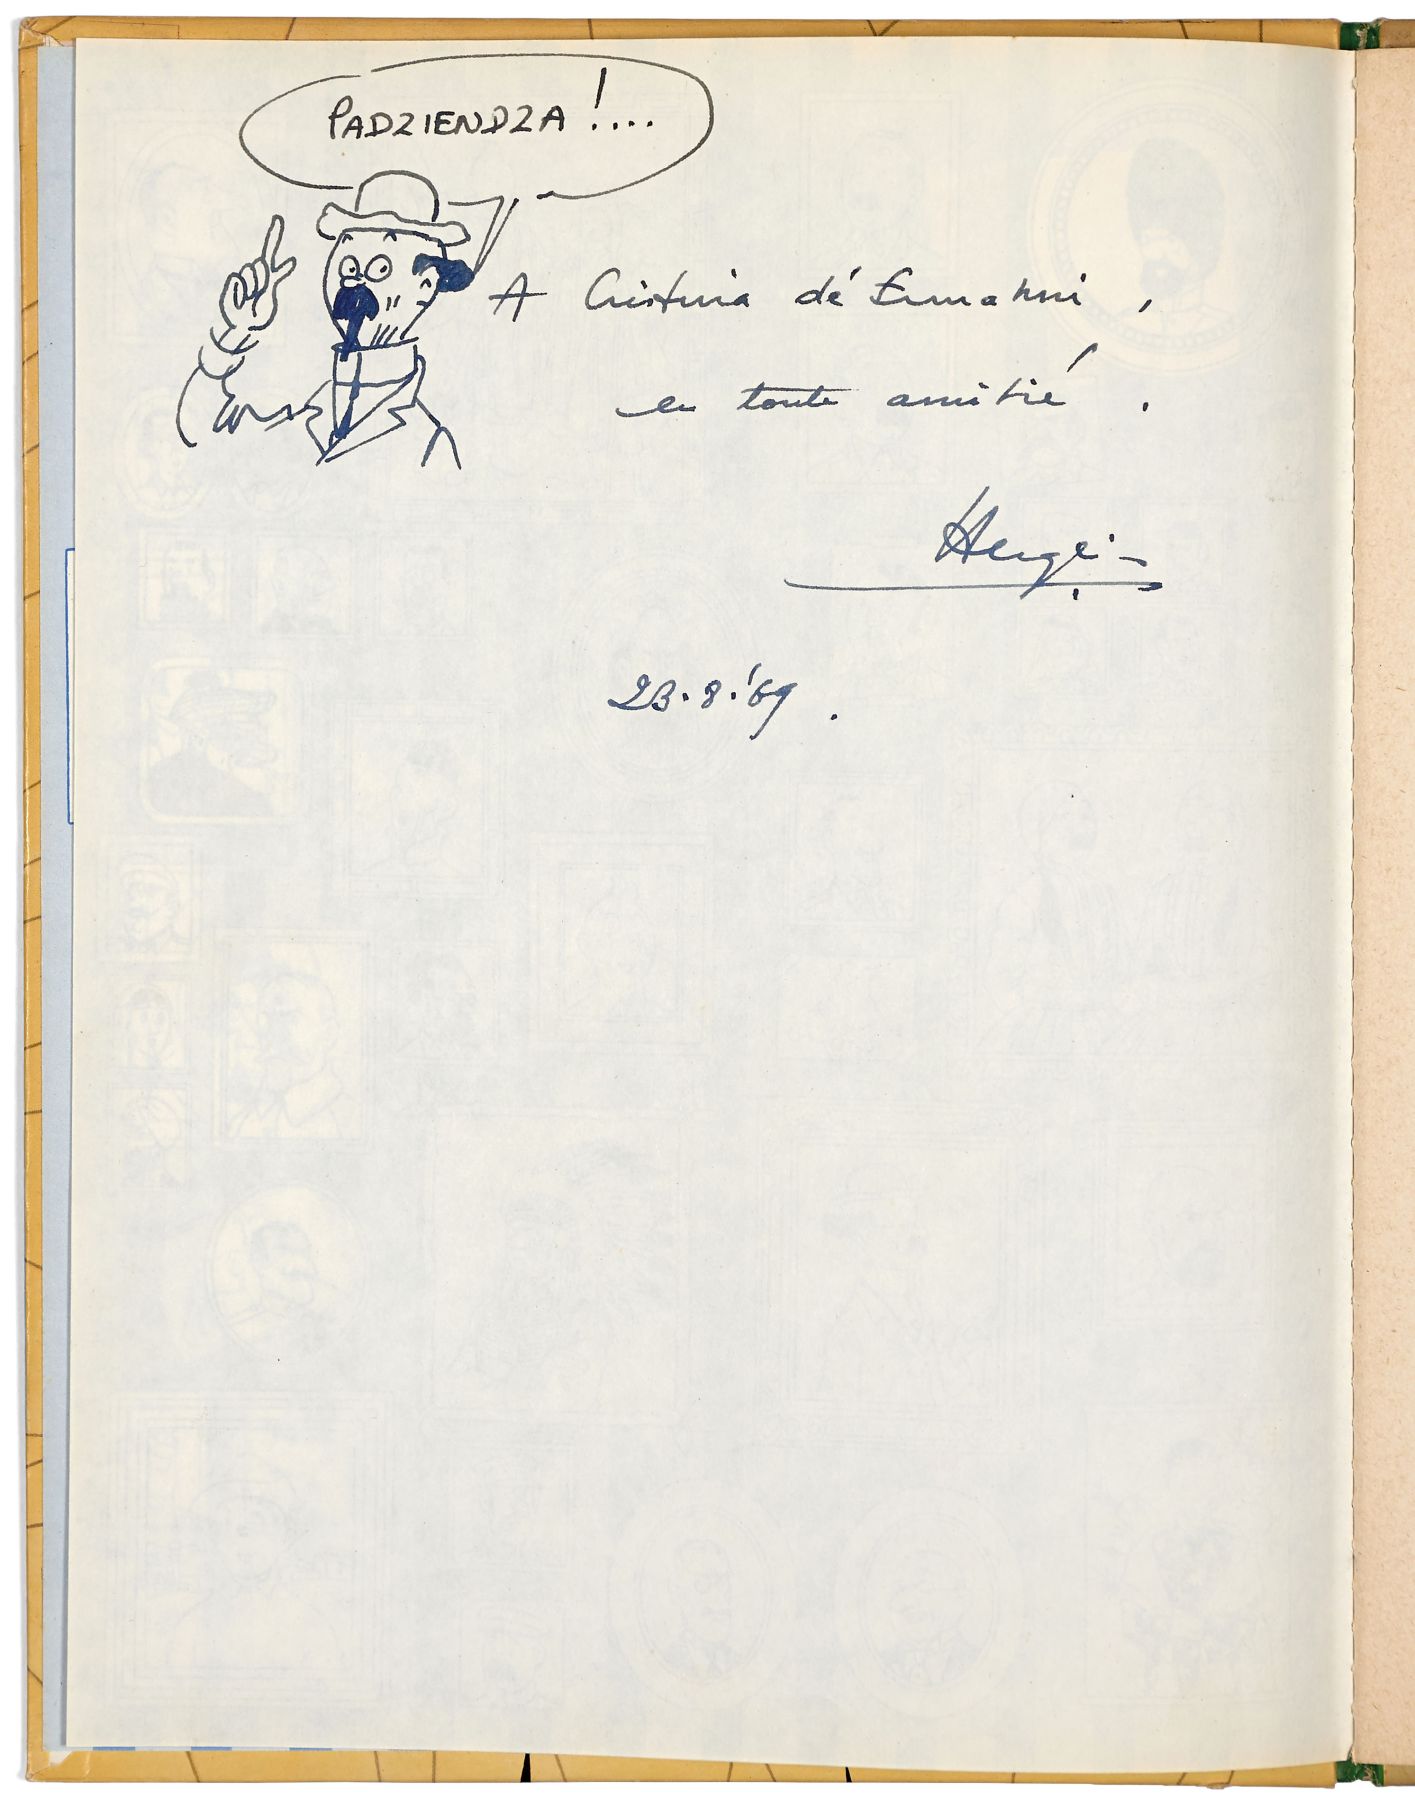 PADZIENDZA !....
A Cristina dé Ermanni,
en toute amitié.
Hergé
23.8.'69.